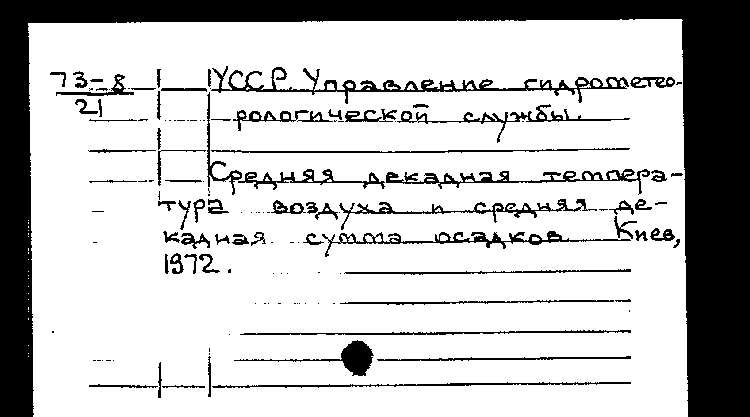 73-8
21
УССР. Управление гидрометео-
рологической службы.
Средняя декадная темпера-
тура воздуха и средняя де-
кадная сумма осадков. Киев,
1972.